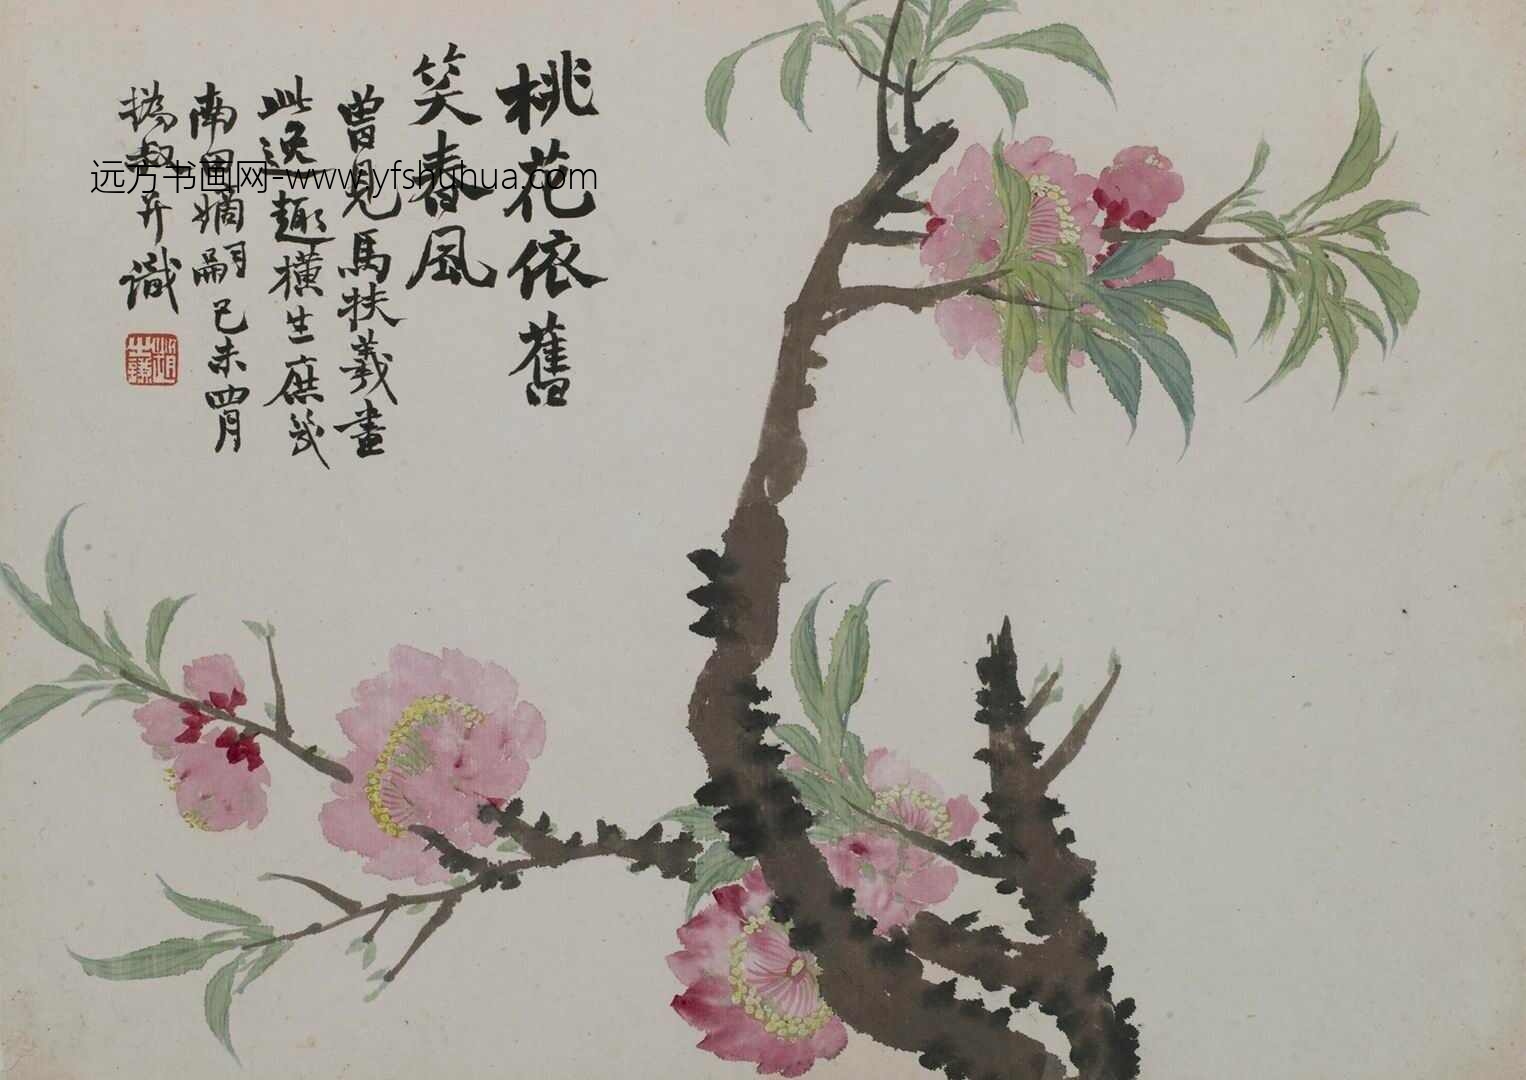 桃花依舊
笑春風
曾見馬扶羲畫
此逸趣橫生庶幾
南田嫡嗣己未四月
撝叔并識
趙之謙
远方书画网-www.yfshuhua.com